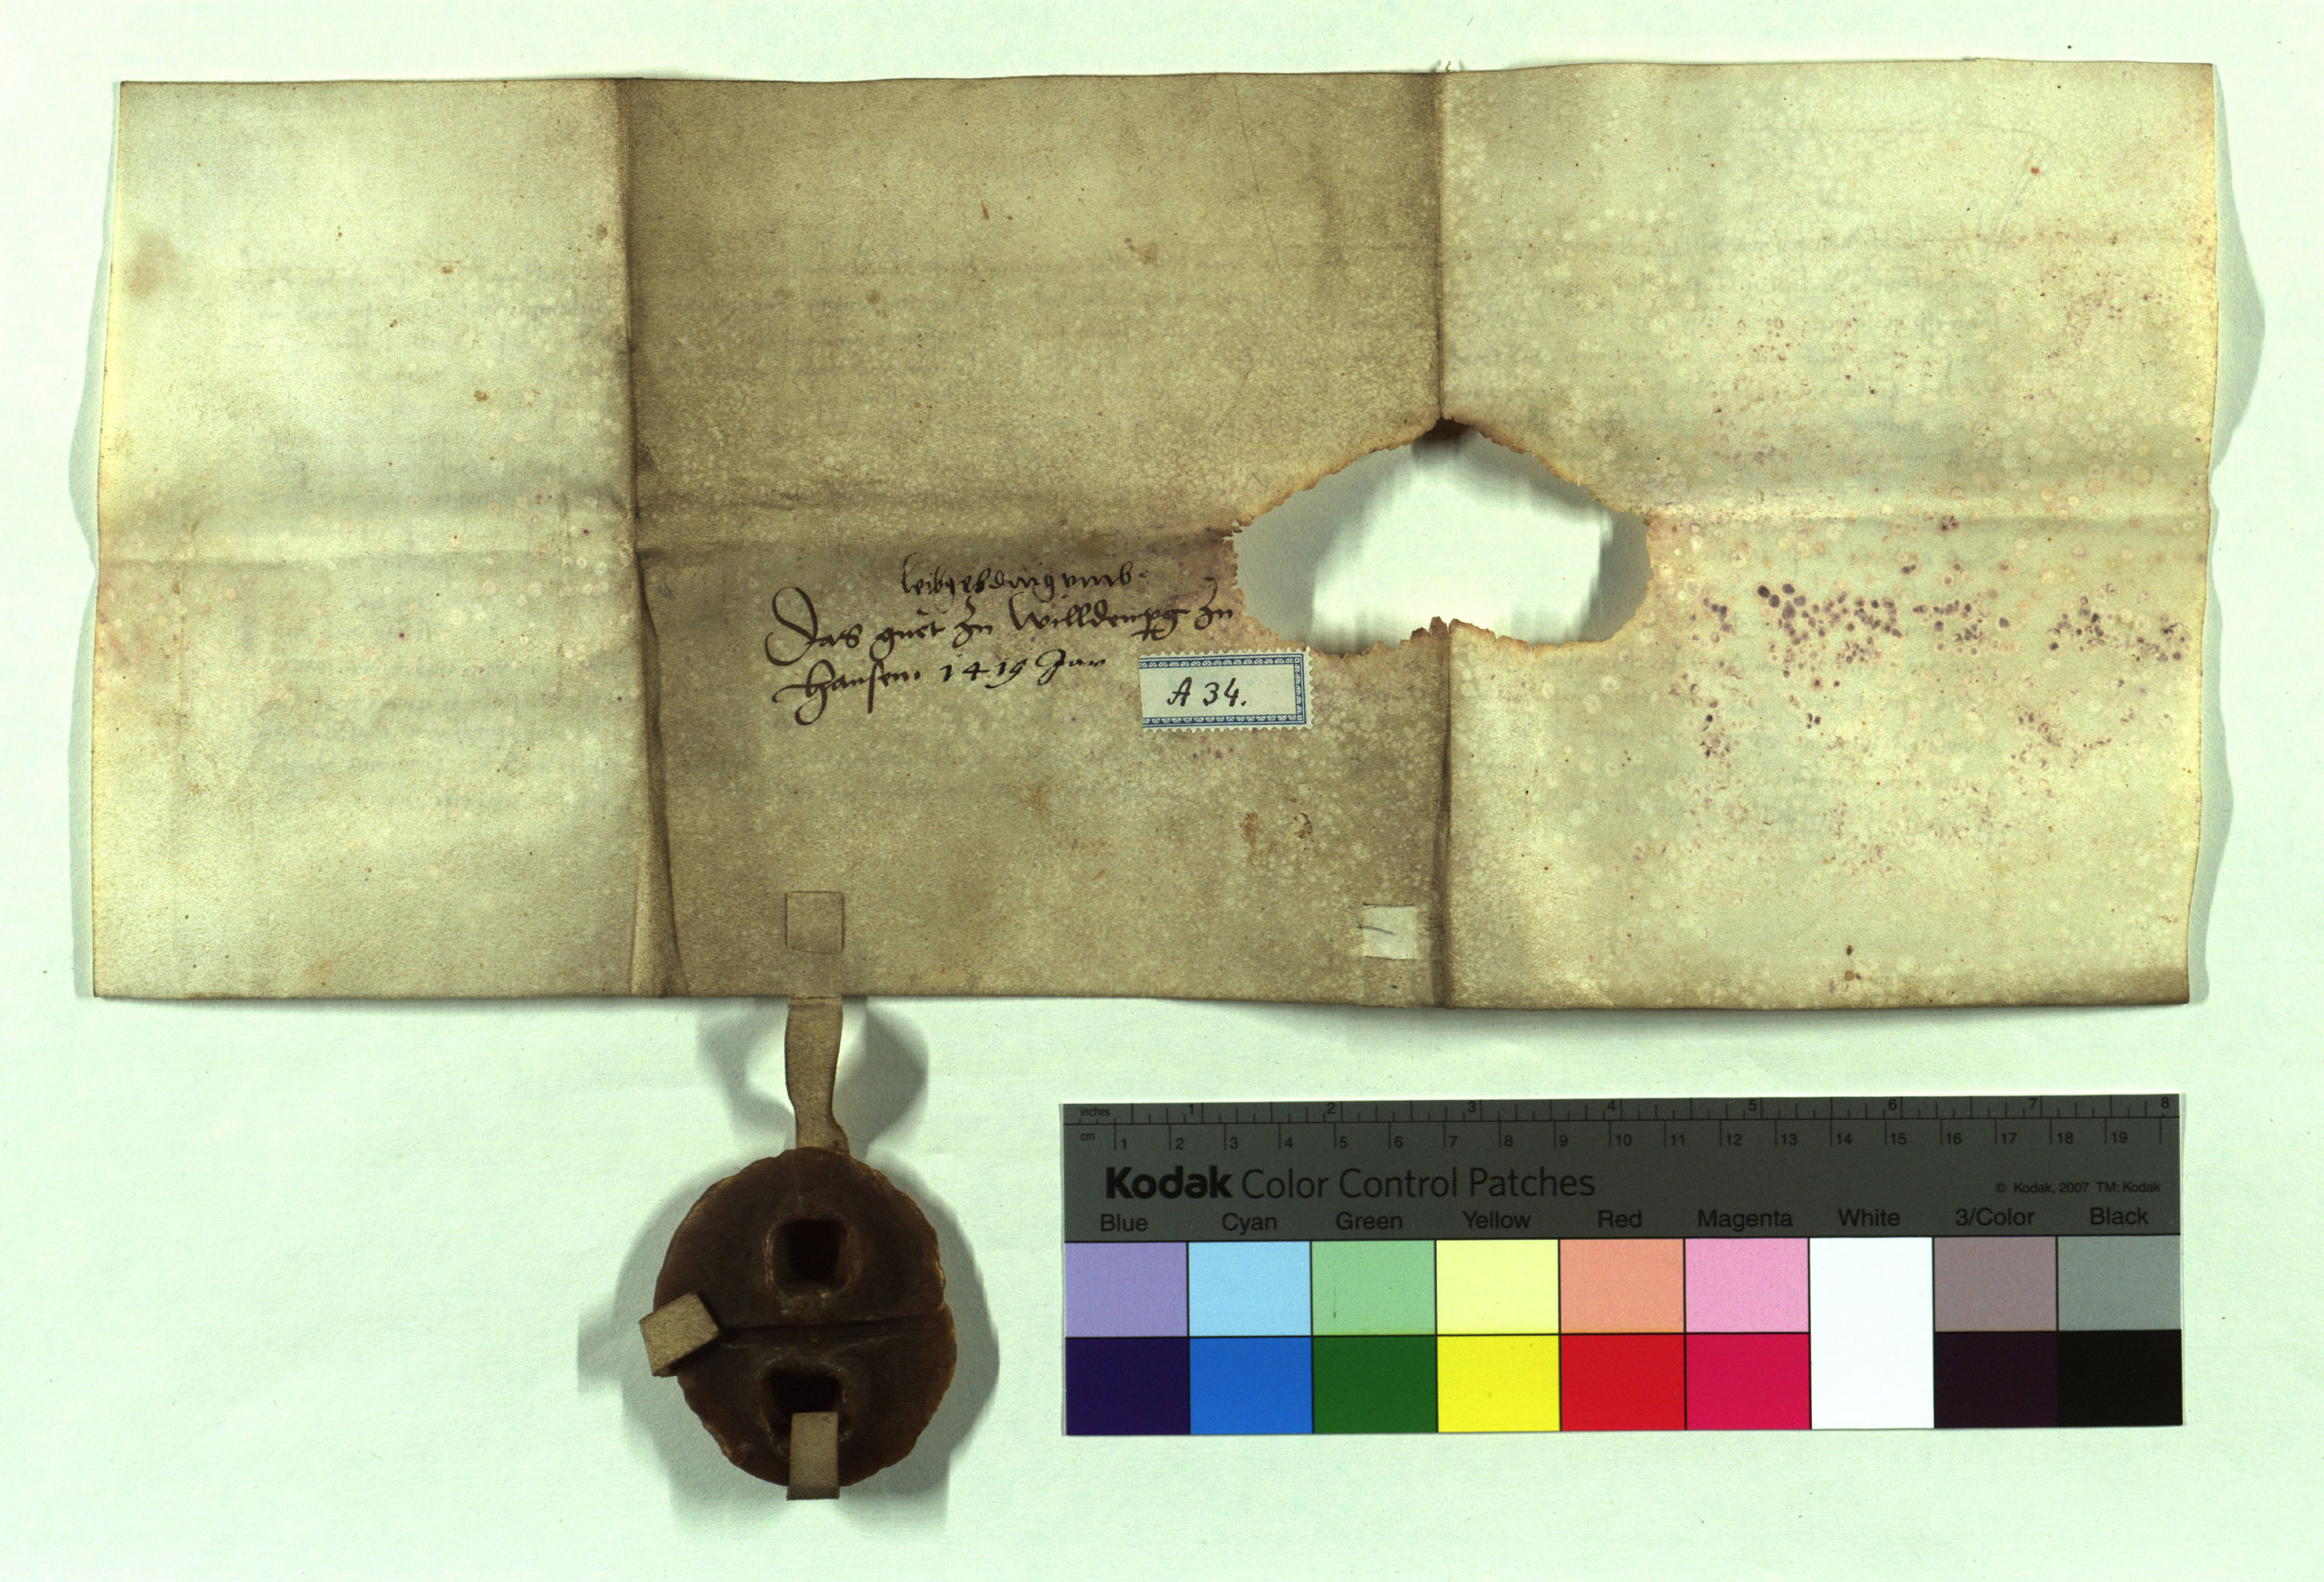 leibgeding vmb
Das guet zu Willdenpg zu
hausen 1419 Jar
A 34.
inches 1 2 3 4 5 6 7 8
cm 1 2 3 4 5 6 7 8 9 10 11 12 13 14 15 16 17 18 19
Kodak Color Control Patches
© Kodak, 2007 TM: Kodak
Blue Cyan Green Yellow Red Magenta White 3/Color Black